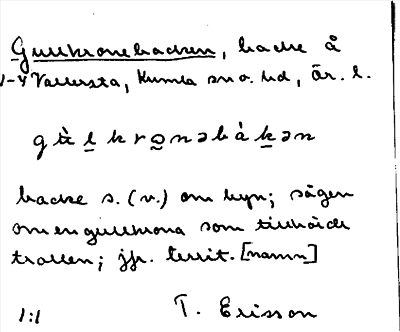 Gullkronebacken, backe å
V-y Vallersta, Kumla sn o. hd, Ör. l.
backe s. (v.) om byn; sägen
om en gullkrona som tillhörde
trollen; jfr. territ. [namn]
1:1 T. Ericsson